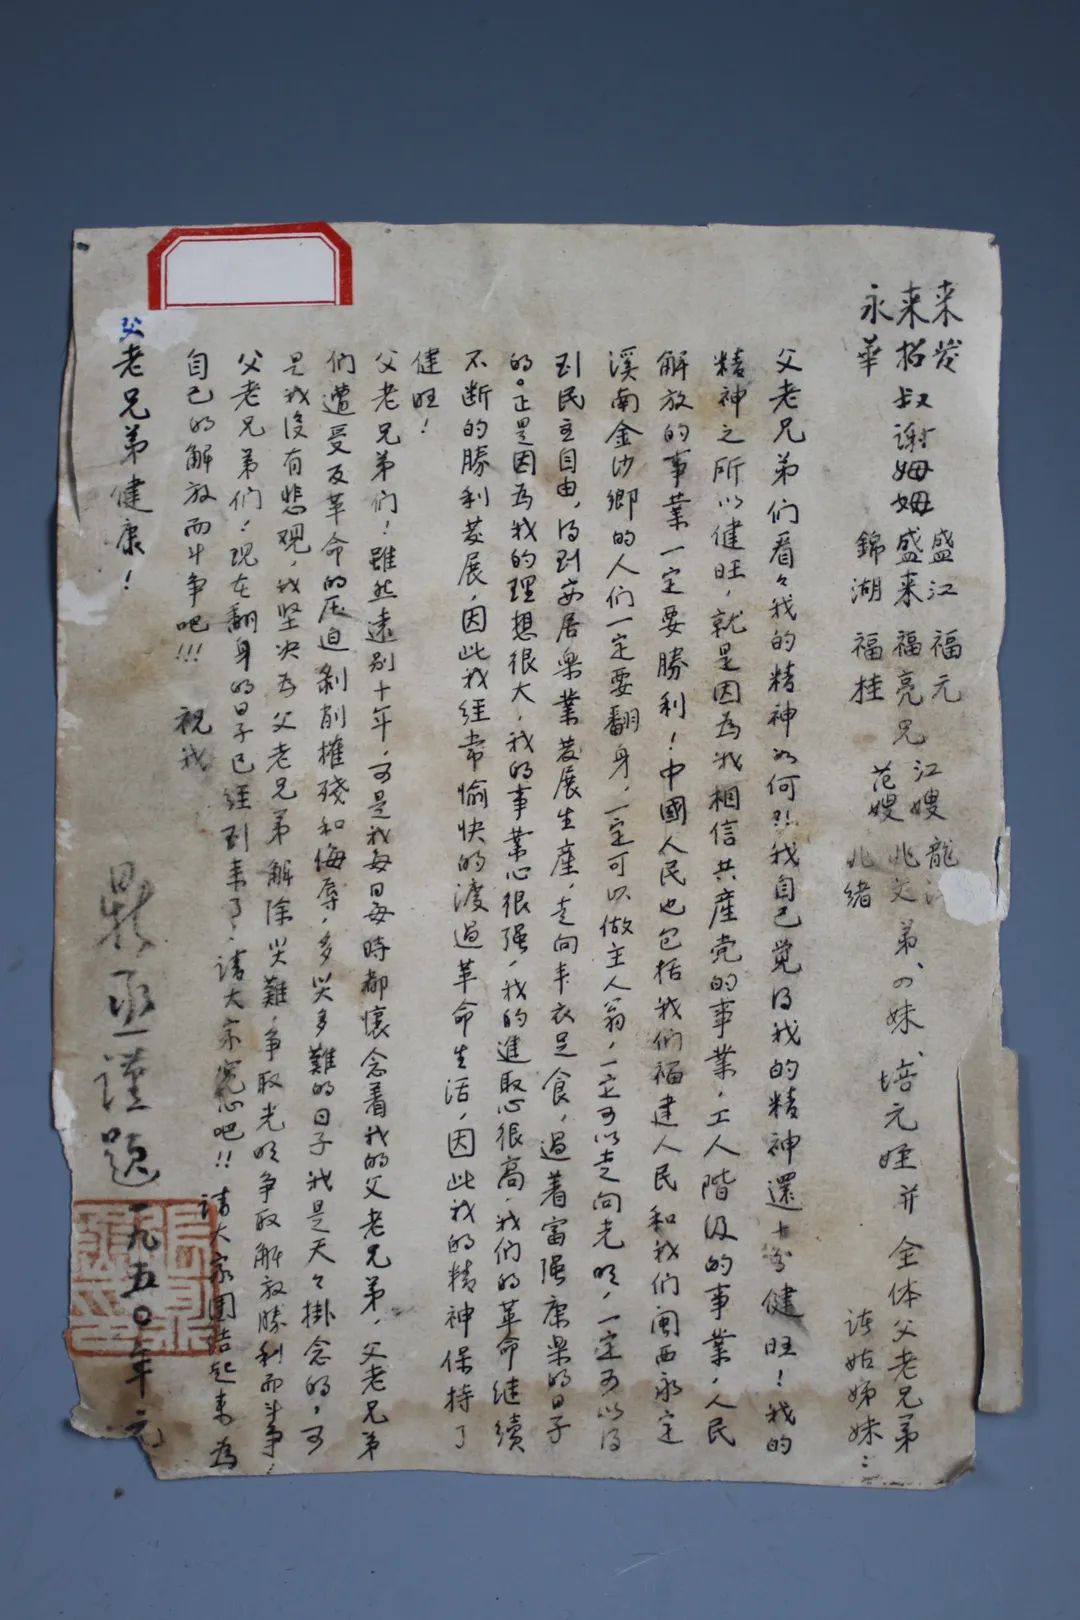 来发 盛江 福元 江嫂 龍
来招叔謝姆姆盛来 福亮兄 兆文弟、四妹、培元姪并全体父老兄弟
永華 錦湖 福桂 范嫂 兆緒 諸姑姊妹：
父老兄弟们看々我的精神如何?!我自己觉得我的精神還十分健旺！我的
精神之所以健旺，就是因为我相信共産党的事業，工人階级的事業，人民
解放的事業一定要勝利！中國人民也包括我们福建人民和我们闽西永定
溪南金沙鄉的人们一定要翻身，一定可以做主人翁，一定可以走向光明，一定可以得
到民主自由，得到安居樂業发展生產，走向丰衣足食，過着富强康樂的日子
的。正是因为我的理想很大，我的事業心很强，我的進取心很高，我们的革命继續
不断的勝利发展，因此我经常愉快的渡過革命生活，因此我的精神保持了
健旺！
父老兄弟们！雖然遠别十年，可是我每日每時都懷念着我的父老兄弟，父老兄弟
们遭受反革命的压迫剝削摧殘和侮辱，多災多難的日子我是天々掛念的，可
是我没有悲观，我坚决为父老兄弟解除災難，争取光明争取解放勝利而斗争！
父老兄弟们！现在翻身的日子已经到来了，請大家宽心吧!!請大家團结起来为
自己的解放而斗争吧!!!祝我
父老兄弟健康！
丞謹題一九五〇年元